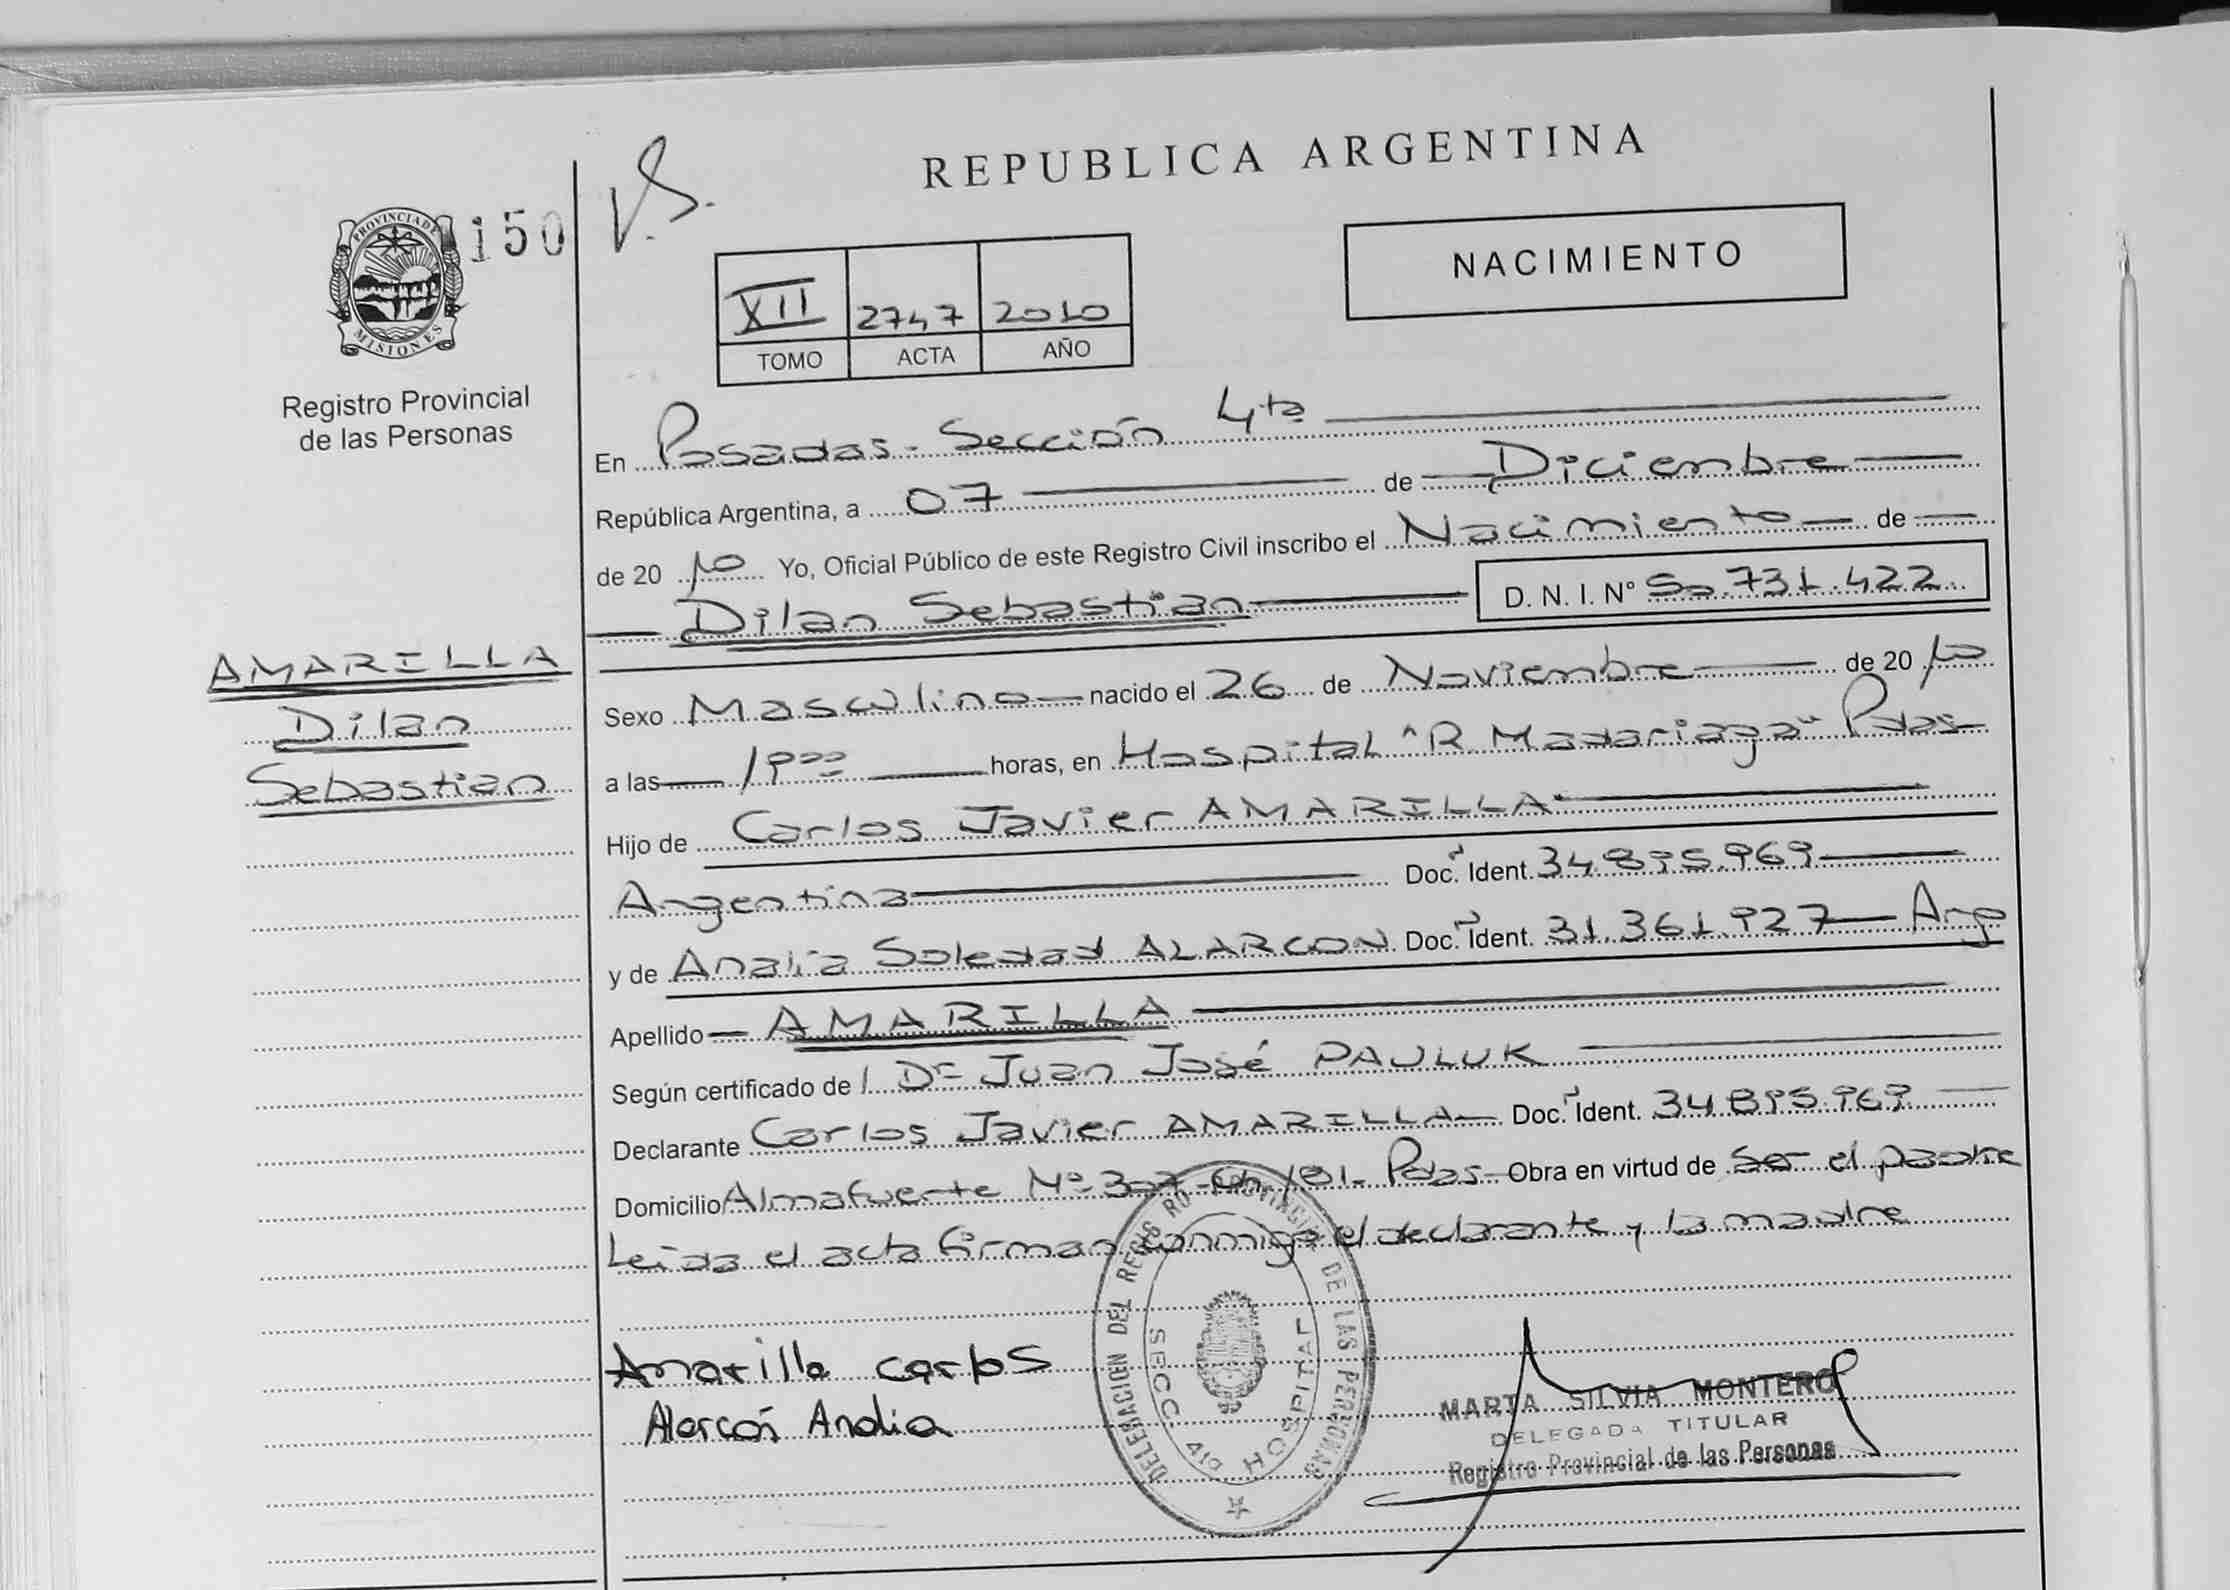 REPUBLICA ARGENTINA
PROVINCIA DE MISIONES
150
V.S.
NACIMIENTO
XII 2747 2010
TOMO ACTA AÑO
Registro Provincial
de las Personas
En Posadas - Sección 4ta
República Argentina, a 07 de Diciembre
de 20 10 Yo, Oficial Público de este Registro Civil inscribo el Nacimiento de
Dilan Sebastian D. N. I. Nº 50.731.422
AMARILLA
Dilan
Sebastian
Sexo Masculino nacido el 26 de Noviembre de 20 10
a las 19 00 horas, en Hospital "R. Madariaga" Pdas
Hijo de Carlos Javier AMARILLA
Argentina Doc. Ident. 34.895.969
y de Analia Soledad ALARCON Doc. Ident. 31.361.927 Arg
Apellido AMARILLA
Según certificado de Dr Juan José PAULUK
Declarante Carlos Javier AMARILLA Doc. Ident. 34.895.969
Domicilio Almafuerte Nº 307 Ch. 181 - Pdas Obra en virtud de Ser el padre
Leida el acta firman conmigo el declarante y la madre
Amarilla carlos
Alarcón Analia
DELEGACION DEL REGISTRO PROVINCIAL DE LAS PERSONAS
SECC. 4ta HOSPITAL
MARTA SILVIA MONTERO
DELEGADA TITULAR
Registro Provincial de las Personas